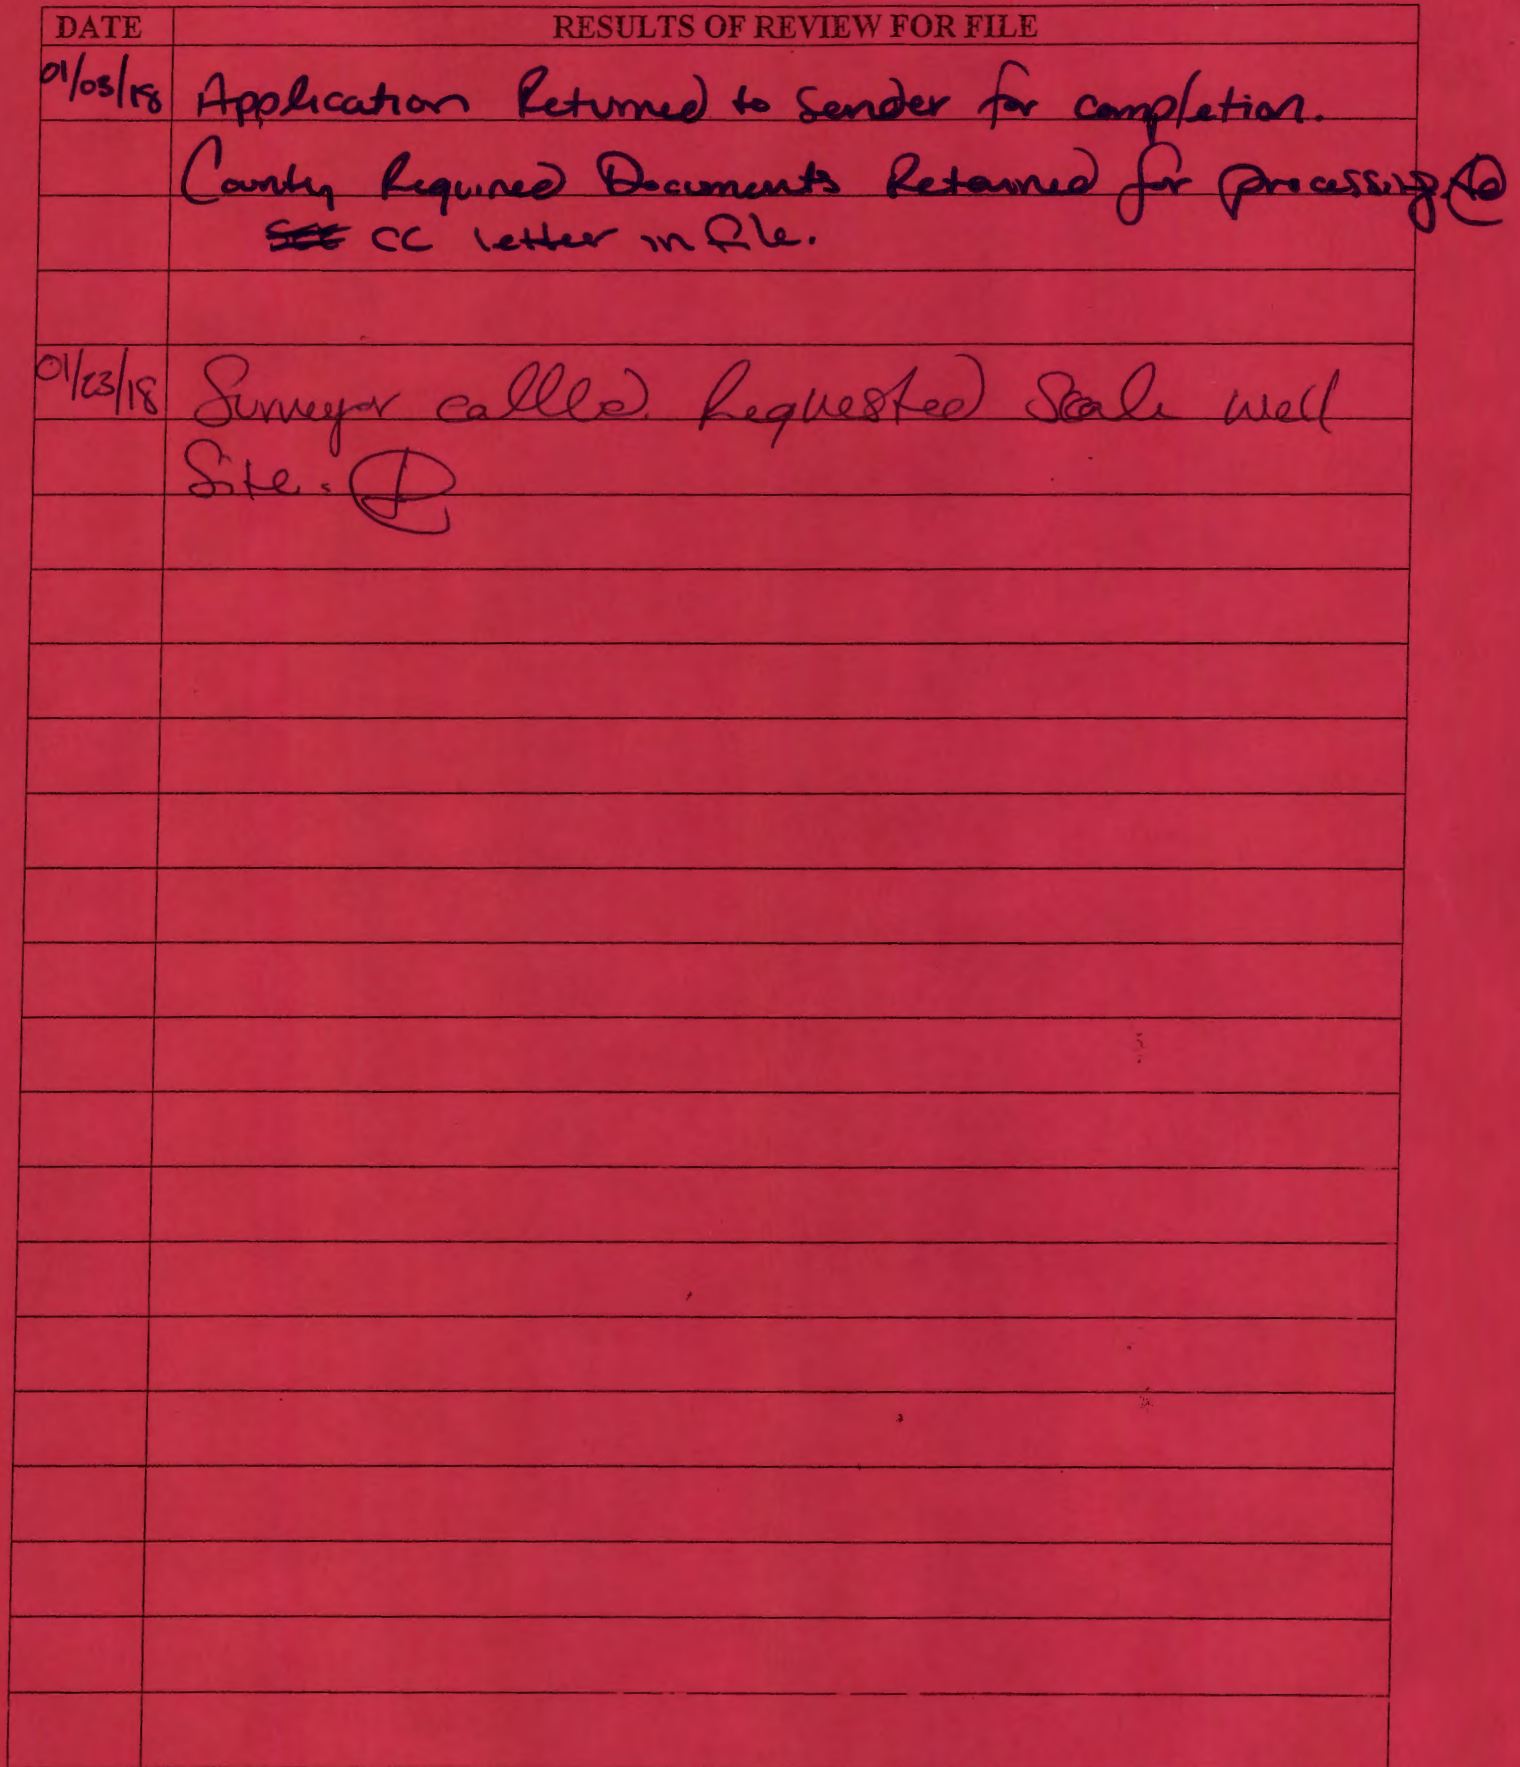 DATE RESULTS OF REVIEW FOR FILE
01/03/18 Application Returned to Sender for completion.
County Required Documents Retained for processing.
CC letter in file.
01/23/18 Surveyor called. Requested Scale well
Site.